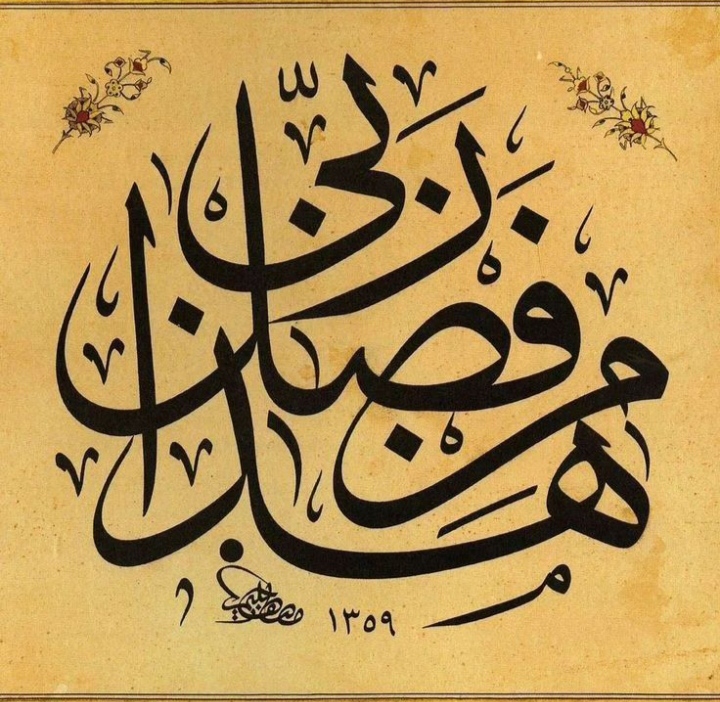 هذا من فضل ربي
١٣٥٩